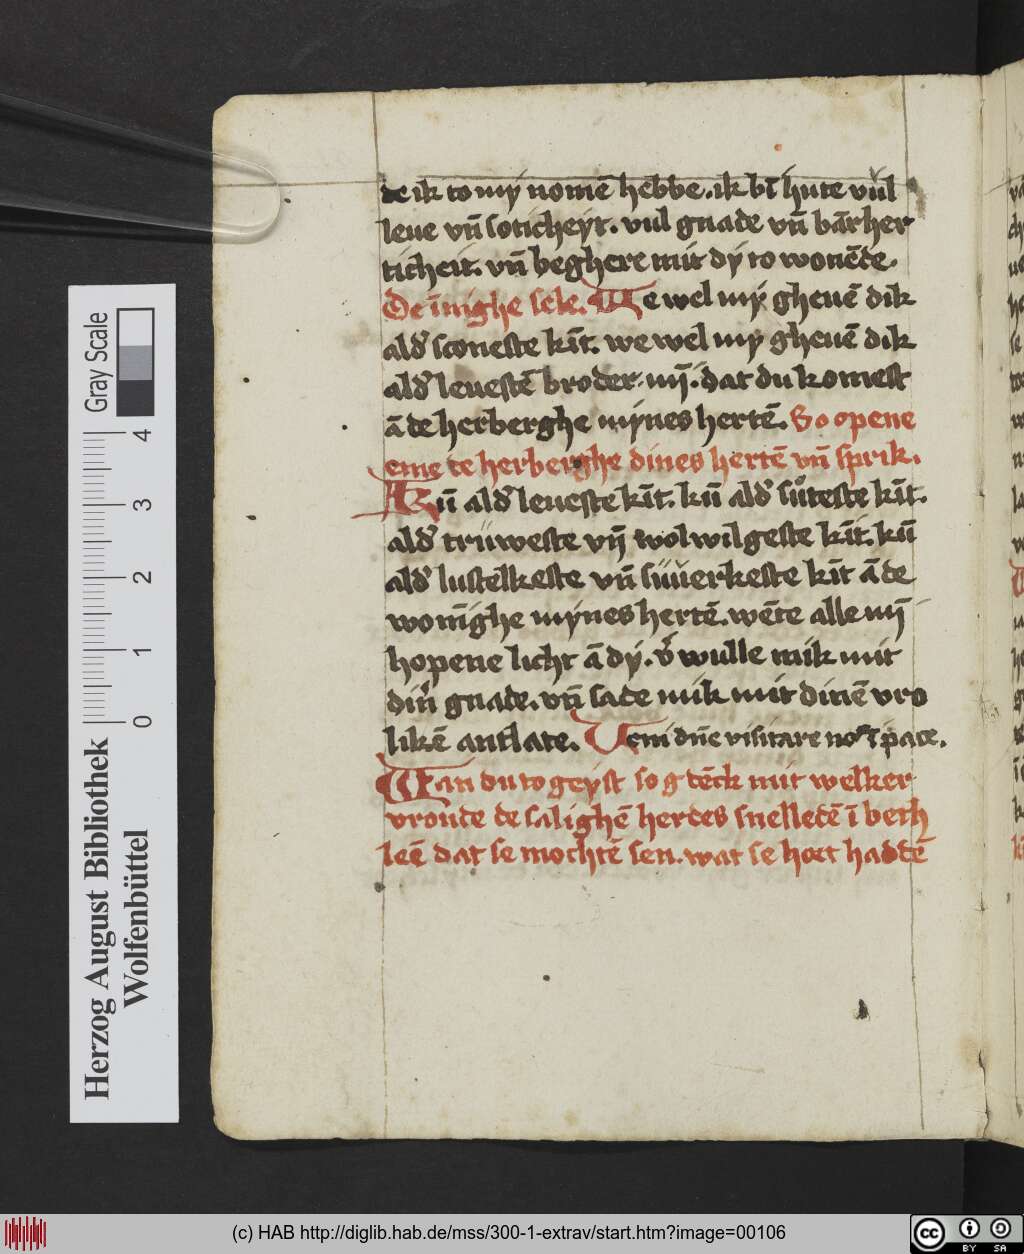 de ik to my nomē hebbe. ik bī hute vul
leue vn̄ soticheyt. vul gnade vn̄ bār her
ticheit. vn̄ beghere mit dy to wonēde.
De īnighe sele. We wel my gheuē dik
alď sconeste kīt. we wel my gheuē dik
alď leuestē broder mȳ. dat du komest
ā de herberghe mynes hertē. So opene
eme de herberghe dines hertē vn̄ sprik.
Kū alď leueste kīt. kū alď sůteste kīt.
alď trüweste vn̄ wolwilgeste kīt. kū
alď lustelkeste vn̄ sůuerkeste kīt ā de
wonīghe mynes hertē. wēte alle mȳ
hopene licht ā dy. vˀwulle mik mit
dinˀ gnade. vn̄ lade mik mit dinē vro
likē antlate. Veni dn̄e visitare nos ī pace.
Wan du to geyst so g dēck mit welker
vroude de salighē herdes snelledē ī beth
leē dat se mochtē sen. wat se hort haddē
Gray Scale
0 1 2 3 4
Herzog August Bibliothek
Wolfenbüttel
(c) HAB http://diglib.hab.de/mss/300-1-extrav/start.htm?image=00106
cc BY SA